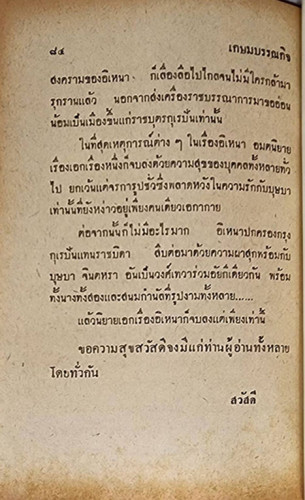 ๘๔ เกษมบรรณกิจ
สงครามของอิเหนา ก็เลื่องลือไปไกลจนไม่มีใครกล้ามา
รุกรานแล้ว นอกจากส่งเครื่องราชบรรณาการมาขออ่อน
น้อมเป็นเมืองขึ้นแก่ราชบุตรกุเรปันเท่านั้น
ในที่สุดเหตุการณ์ต่าง ๆ ในเรื่องอิเหนา อมตนิยาย
เรื่องเอกเรื่องหนึ่งก็จบลงด้วยความสุขของบุคคลทั้งหลายทั่ว
ไป ยกเว้นแต่จรการูปชั่วซึ่งพลาดหวังในความรักกับบุษบา
เท่านั้นที่ยังหง่าวอยู่เพียงคนเดียวเอกากาย
ต่อจากนั้นก็ไม่มีอะไรมาก อิเหนาปกครองกรุง
กุเรปันแทนราชบิดา สืบต่อมาด้วยความผาสุกพร้อมกับ
บุษบา จินตหรา อันเป็นวงศ์เทวาร่วมอัยกีเดียวกัน พร้อม
ทั้งนางทั้งสองและสนมกำนัลที่รูปงามทั้งหลาย......
แล้วนิยายเอกเรื่องอิเหนาก็จบลงแต่เพียงเท่านี้
ขอความสุขสวัสดีจงมีแก่ท่านผู้อ่านทั้งหลาย
โดยทั่วกัน
สวัสดี